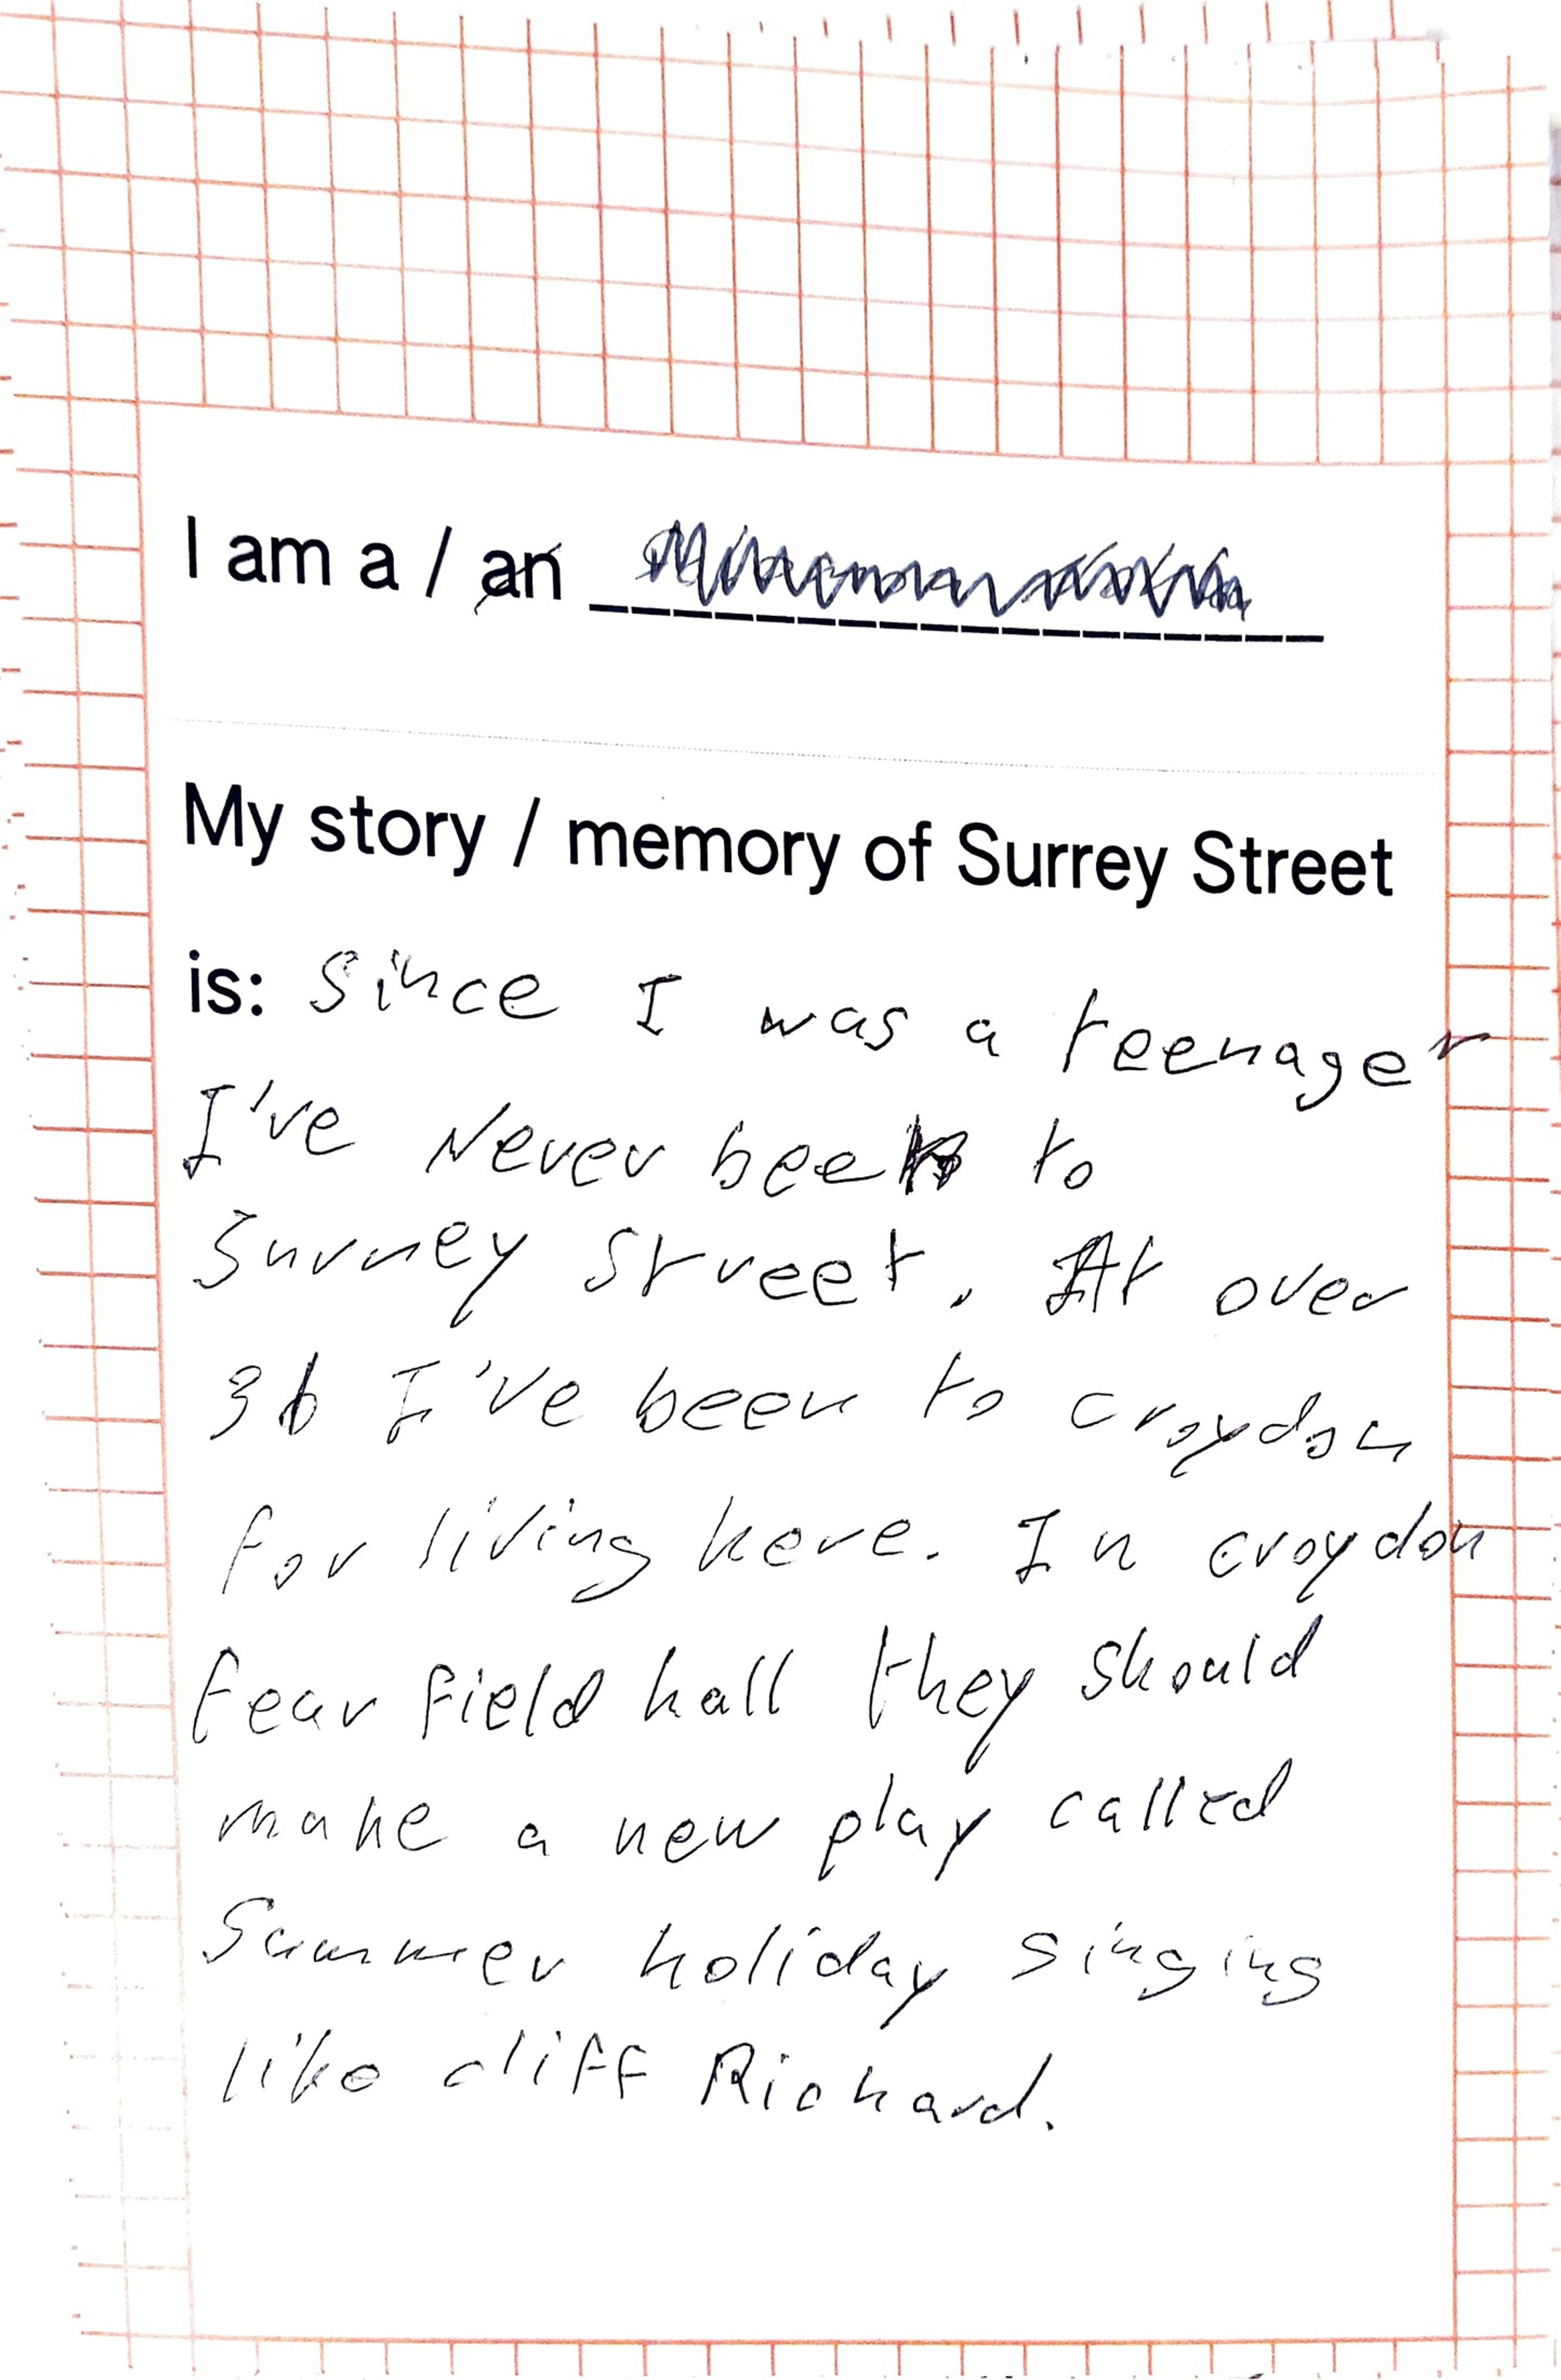 I am a / an
My story / memory of Surrey Street
is: Since I was a teenager
I've Never been to
Surrney Street. At over
36 I've been to croydon
for living here. In croydon
fear field hall they should
make a new play called
Summer holiday singing
like cliff Richard.